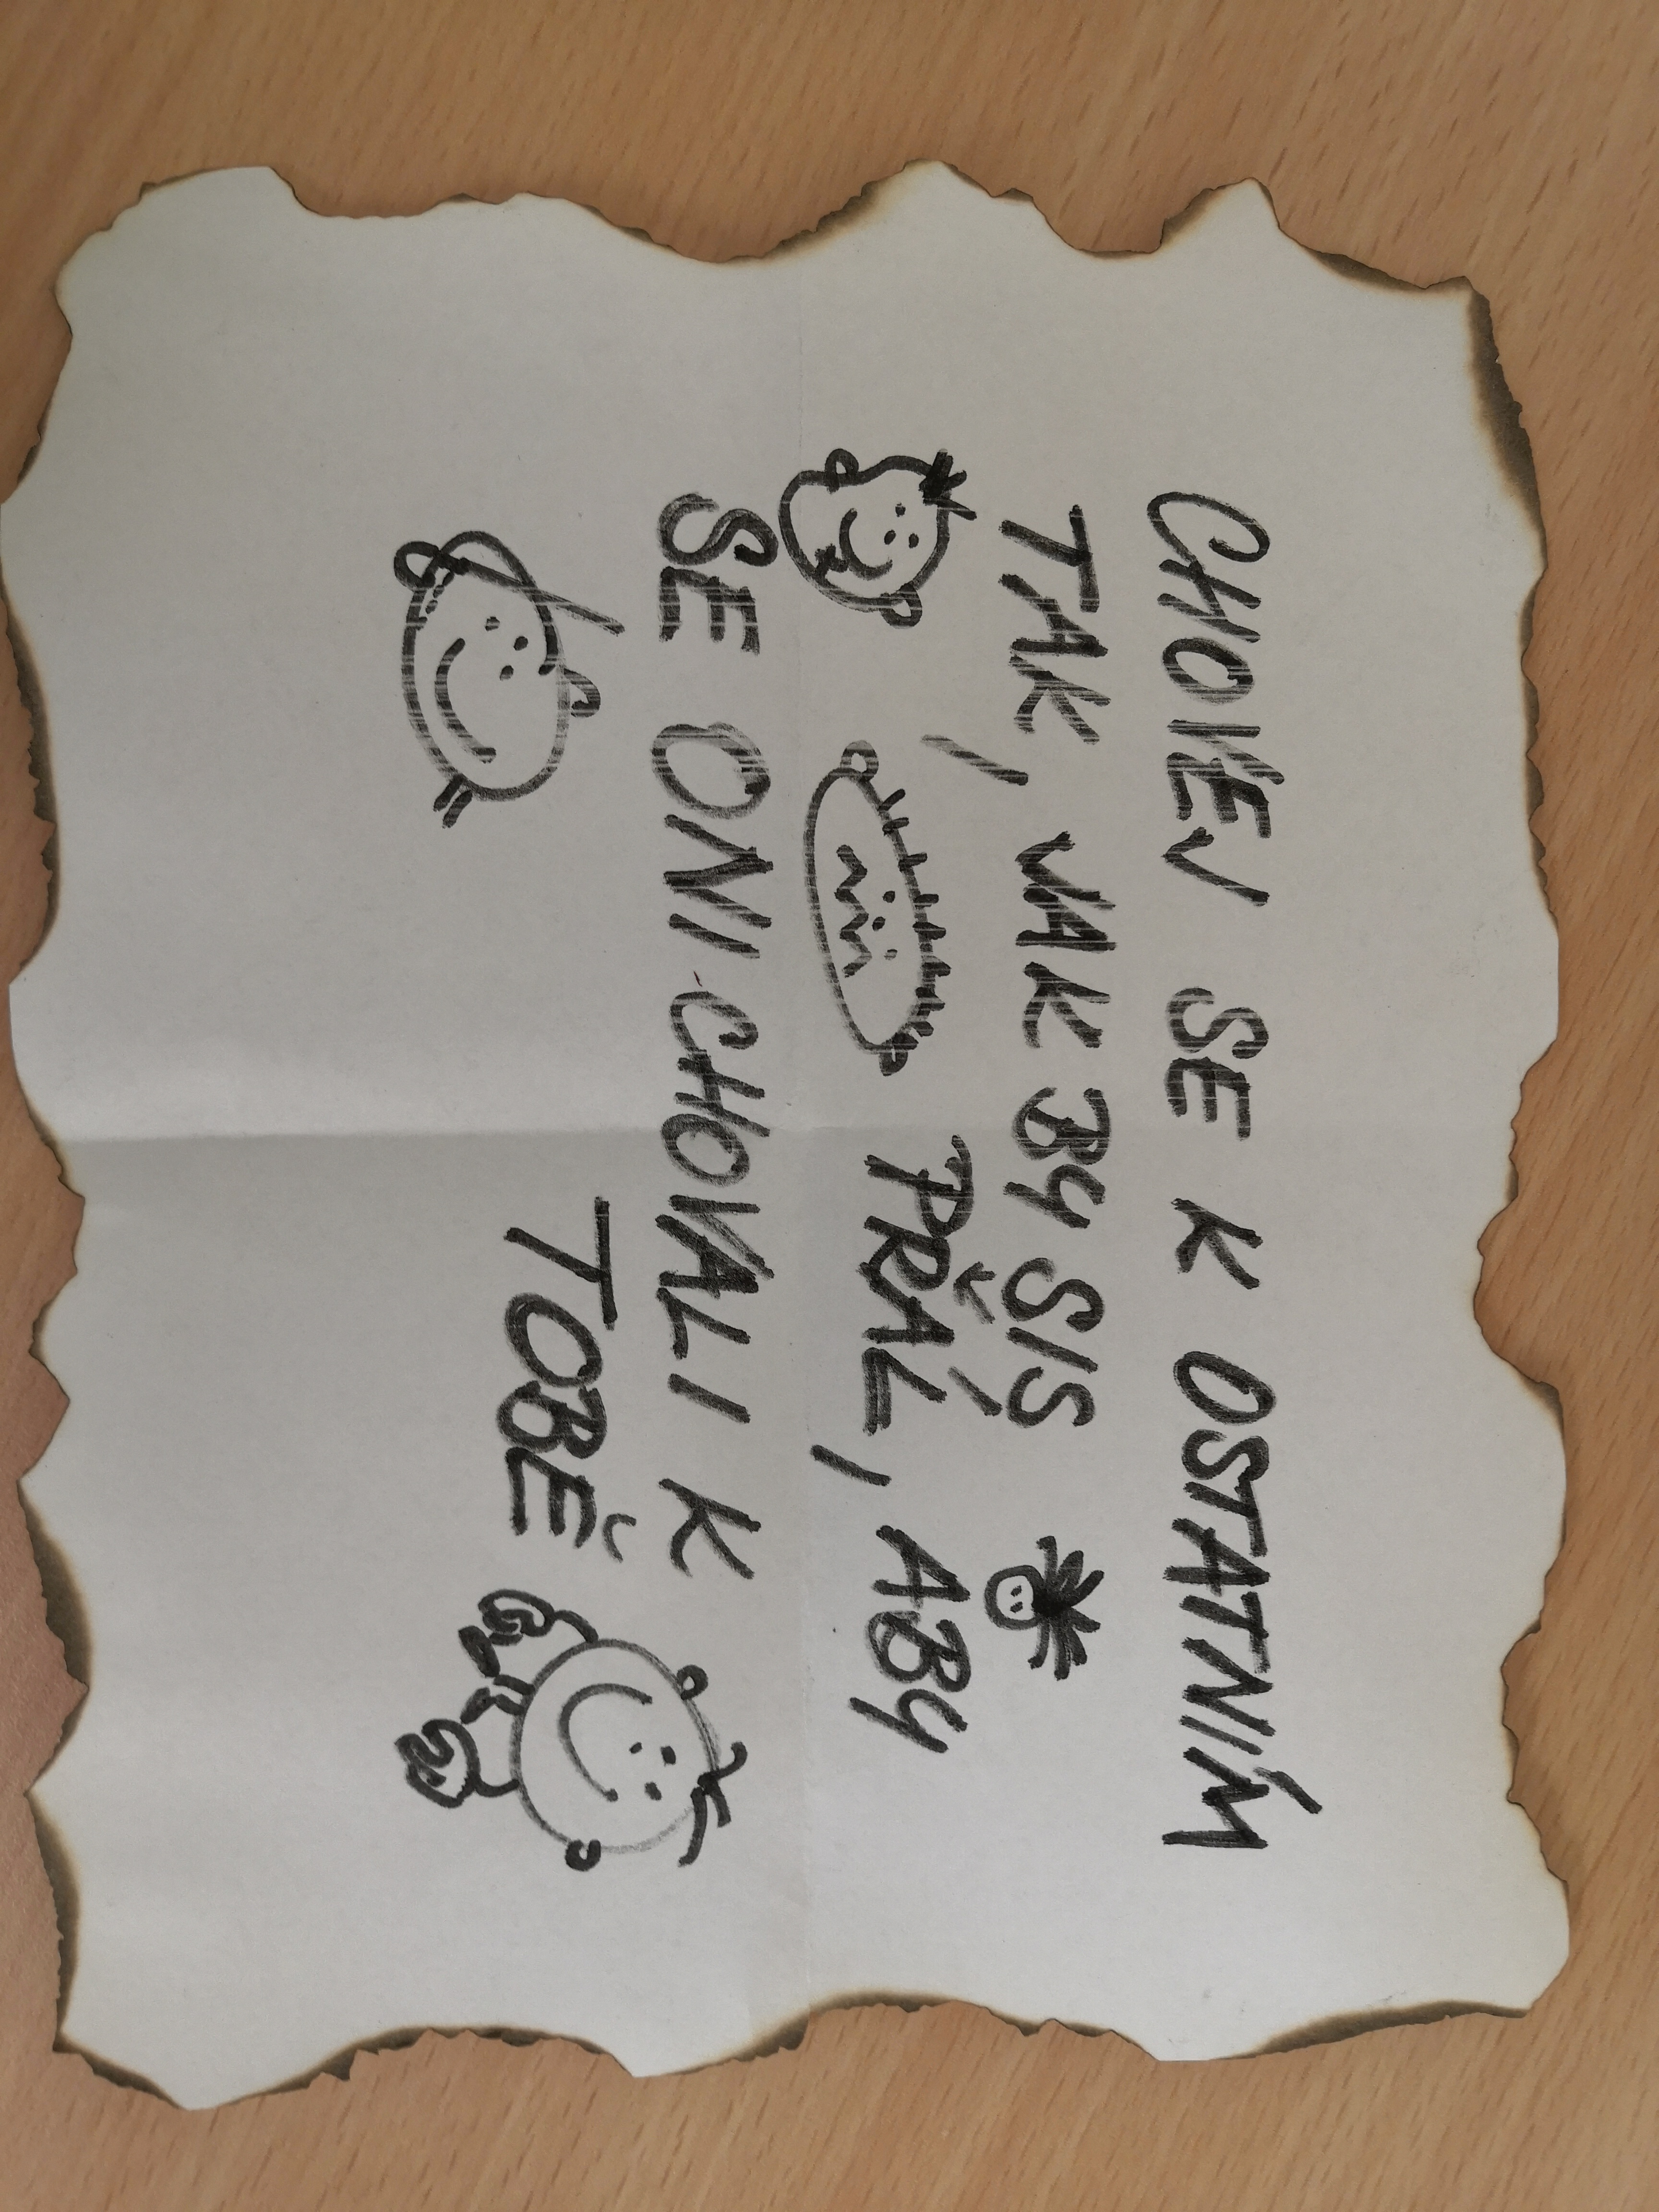 CHOVEJ SE K OSTATNÍM
TAK, JAK BY SIS
PŘÁL, ABY
SE ONI CHOVALI K
TOBĚ